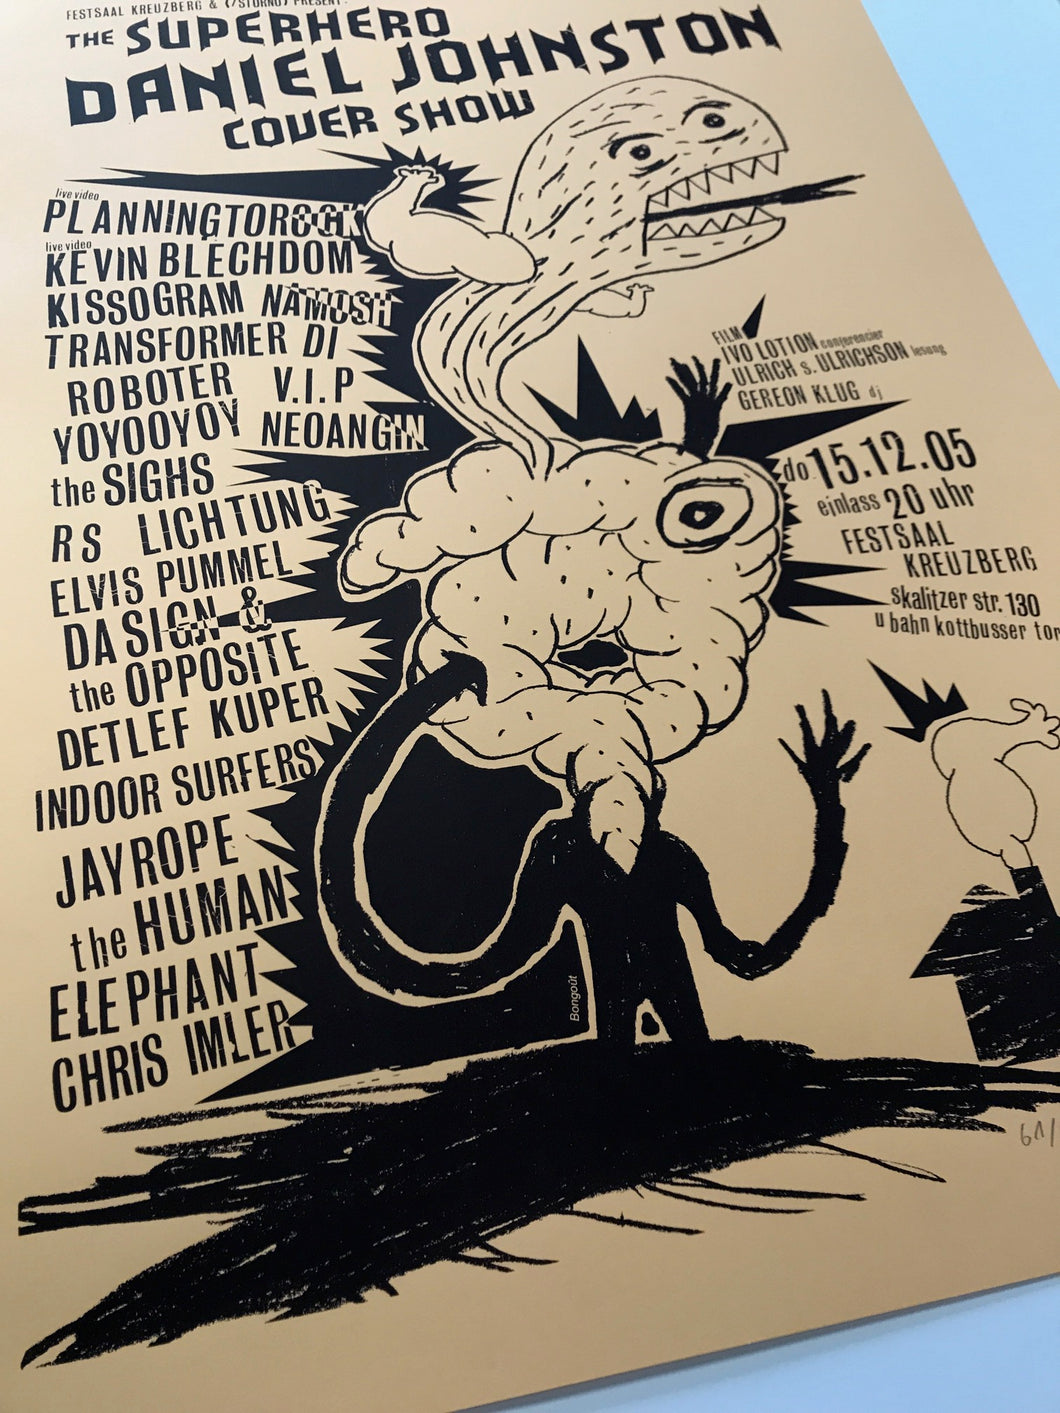 FESTSAAL KREUZBERG & (/STORNO) PRESENT:
THE SUPERHERO
DANIEL JOHNSTON
COVER SHOW
live video
PLANNINGTOROCK
live video
KEVIN BLECHDOM
KISSOGRAM NAMOSH
TRANSFORMER DI
ROBOTER V.I.P
YOYOOYOY NEOANGIN
the SIGHS
RS LICHTUNG
ELVIS PUMMEL
DA SIGN &
the OPPOSITE
DETLEF KUPER
INDOOR SURFERS
JAYROPE
the HUMAN
ELEPHANT
CHRIS IMLER
FILM
IVO LOTION conferencier
ULRICH s. ULRICHSON lesung
GEREON KLUG dj
do 15.12.05
einlass 20 uhr
FESTSAAL
KREUZBERG
skalitzer str. 130
u bahn kottbusser tor
Bongoût
61/